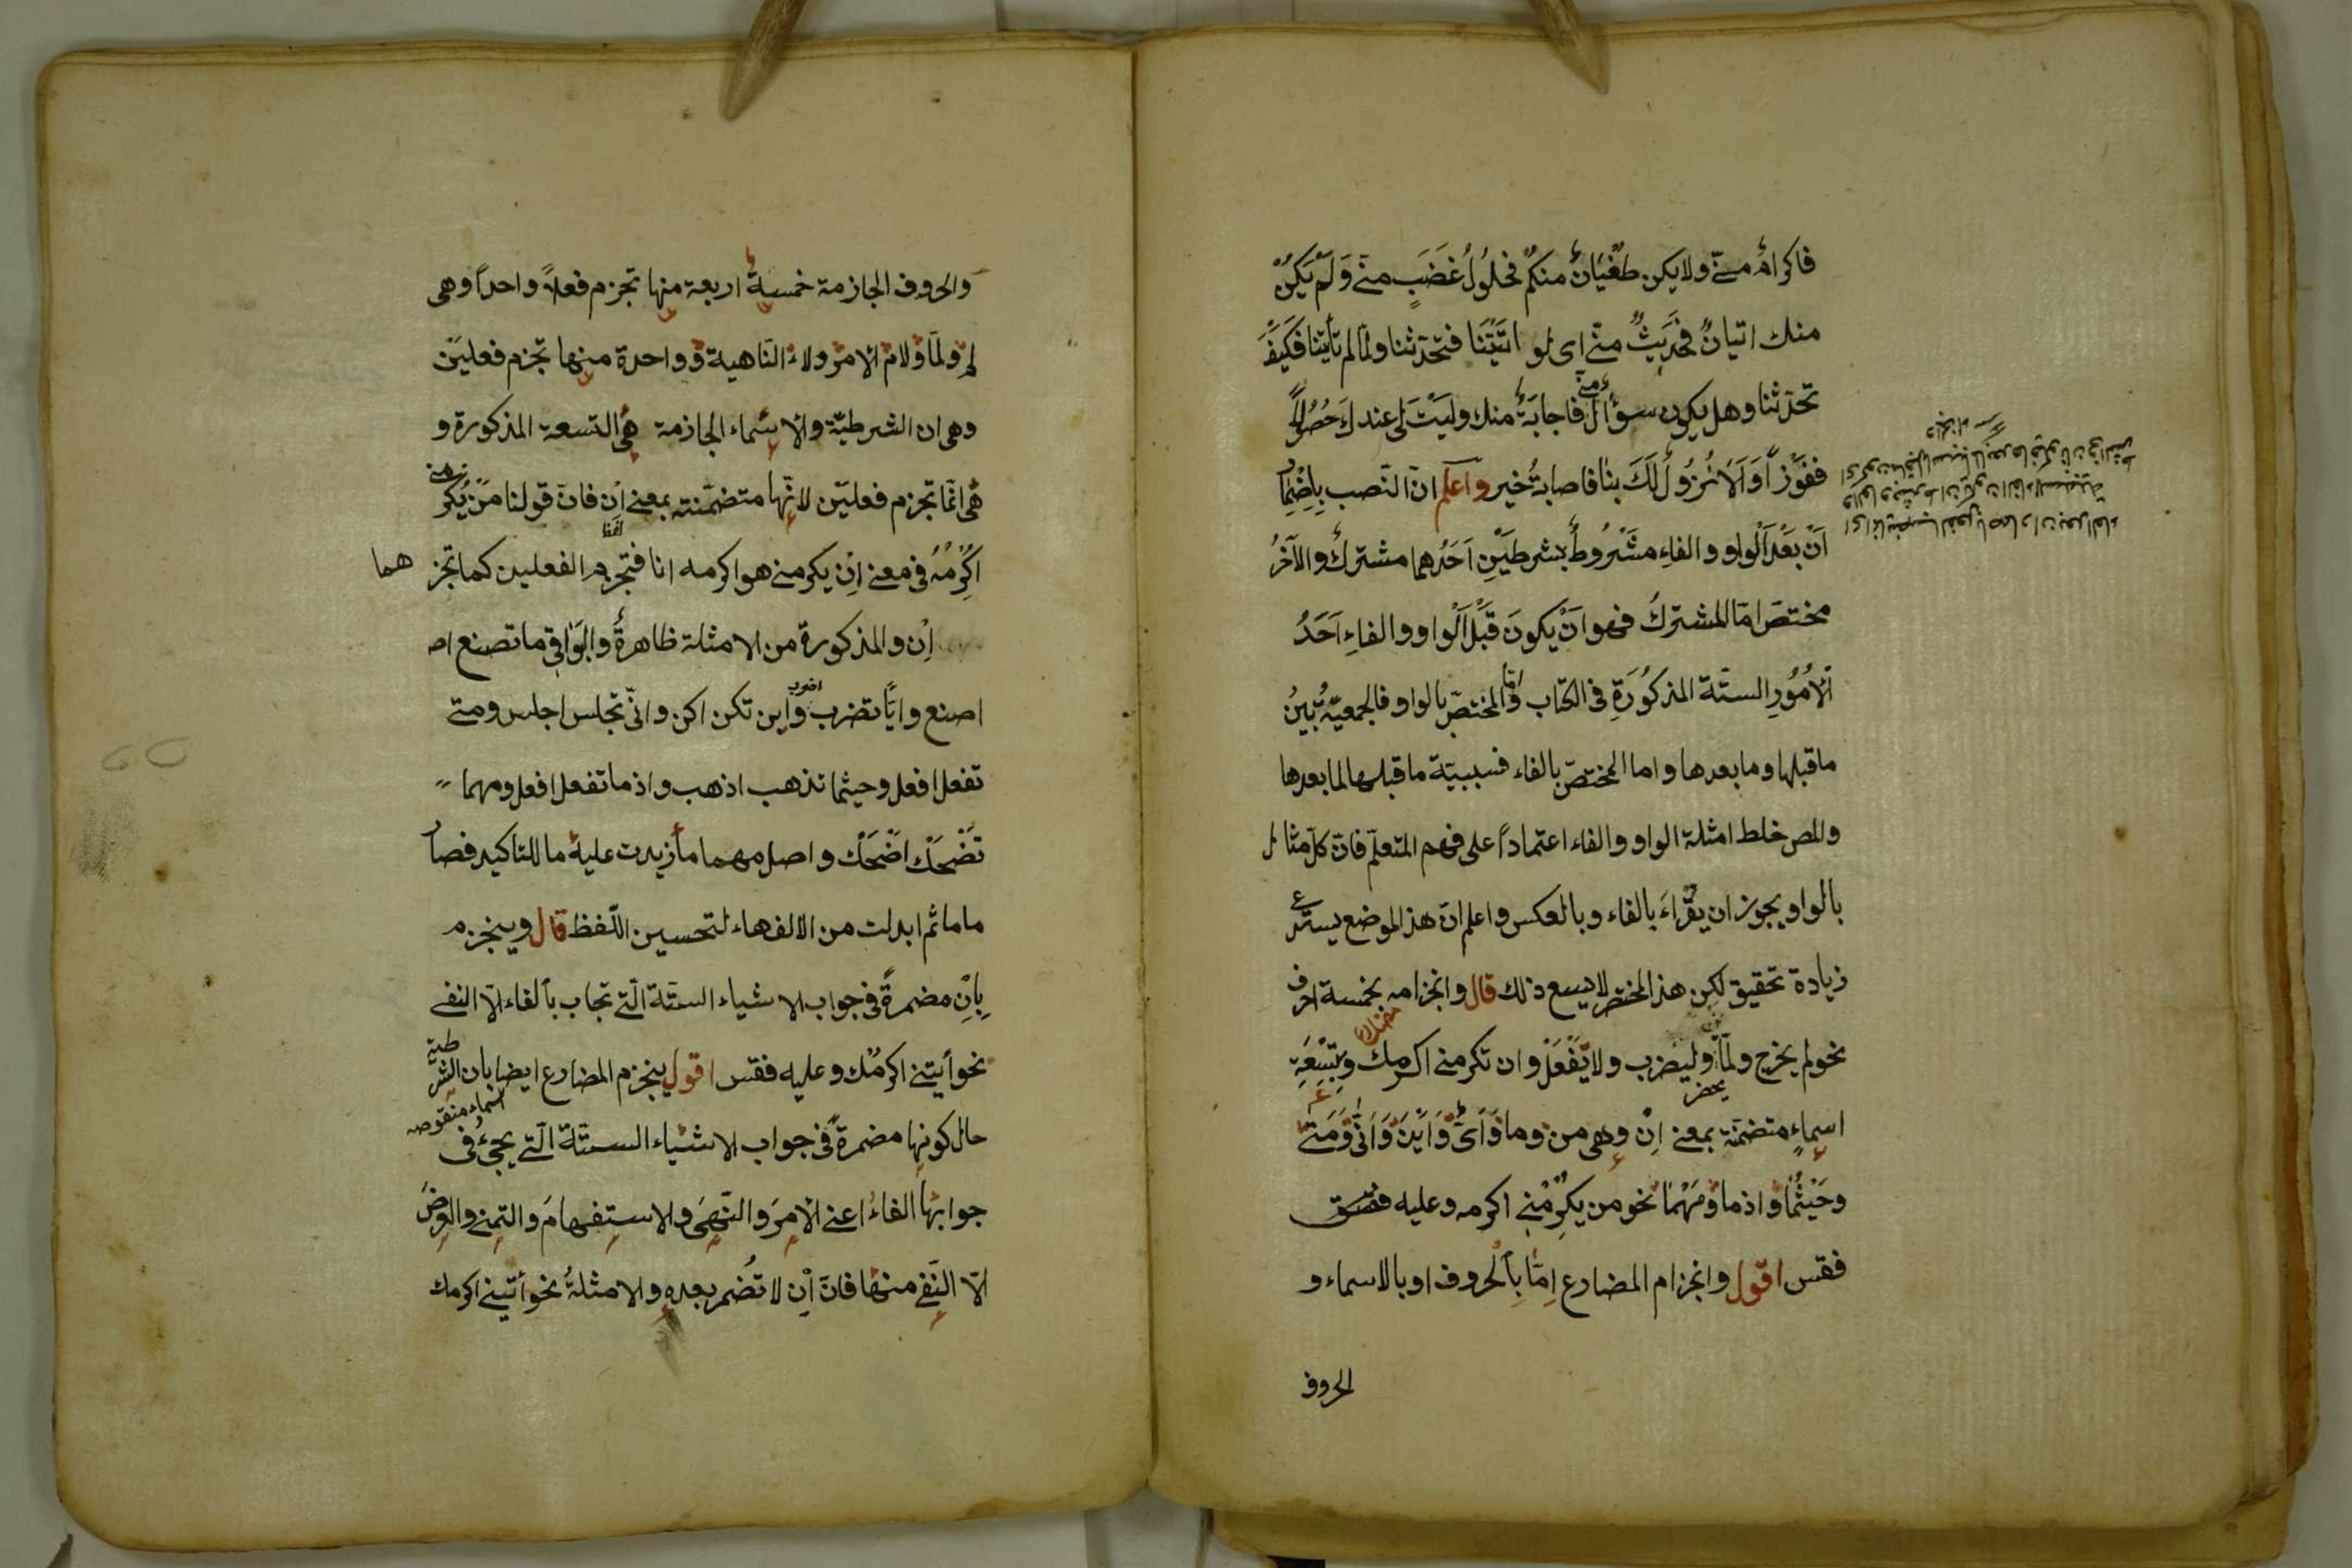 فاكرامٌ منّے ولا يكن طُغْيَانٌ منكم فحلُولُ غَضَبٍ منّے وَلَمْ يَكُنْ
منك اتيانٌ فَحَدِيثٌ منّے اى لو اتَيْتَنَا فتحدّثنا ولمّا لم تأتِنا فَكَيْفَ
تحدّثنا وهل يكون سؤالٌ منّے فاجابَةٌ منك ولَيْتَ لى عندكَ حُصُولًا
ففَوْزًا وَاَلَا نُزُولَ لَكَ بنا فاصابةُ خير واعلم انّ النّصب بِاِضْمَارِ
اَنْ بَعْدَ اَلْواوِ والفاءِ مَشْرُوطٌ بشرطَيْنِ اَحَدُهما مشتركٌ والآخَرُ
مختصّ امّا المشتركُ فهو انْ يكونَ قَبْلَ اَلْواوِ والفاءِ اَحَدُ
اَلْاُمُوْرِ الستّة المذكُوْرَةِ فى الكتاب وامّا المختصّ بالواو فالجمعيّةُ بَيْنُ
ما قبلها وما بعدها واما المختصّ بالفاء فسببيّة ما قبلها لما بعدها
والمص خلط امثلة الواو والفاء اعتمادًا على فهم المتعلّم فانّ كلّ مثال
بالواو يجوز ان يقراءَ بالفاء وبالعكس واعلم انّ هذا الموضع يستدعى
زيادة تحقيق لكن هذا المختصر لا يسع ذلك قال وانجزامه بخمسة احرف
نحو لم يخرج ولمّا يحضر وليضرب ولا يَفْعَلْ وان تكرمنے اكرمك وبِتِسْعَةِ
اسماءٍ متضمّنة بمعنے اِنْ وهى من وما وَاَىّ وَاَيْنَ وَاَنّٰى وَمَتٰے
وحَيْثُمَا واذما ومَهْمَا نحو من يكْرِمْنے اكرمه وعليه فقس
فقس اقول وانجزام المضارع اِمّا بِاَلْحروف او بالاسماء و
الحروف
والحروف الجازمة خمسةٌ اربعة منها تجزم فعلًا واحدًا وهى
لم ولمّا ولام الامر ولاءُ النّاهية وواحدة منها تجزم فعلين
وهى ان الشرطيّة والاسماء الجازمة هى التسعة المذكورة و
هى انّما تجزم فعلين لانّها متضمّنة بمعنے اِن فانّ قولنا مَنْ يُكرمنے
اُكْرِمْهُ فى معنے اِنْ يكرمنے هو اكرمه انا فتجزم الفعلين كما تجزمهما
اِن والمذكورة من الامثلة ظاهرةٌ والبَوَاقى ما تصنع اص
اصنع وايًّا تضرب اضرب واين تكن اكن وانّى تجلس اجلس ومتے
تفعل افعل وحيثما تذهب اذهب واذ ما تفعل افعل ومهما
تَضْحَكْ اَضْحَكْ واصل مهما ما زيدت عليه ما للتاكيد فصار
ماما ثم ابدلت من الالف هاء لتحسين اللّفظ قال وينجزم
بِاِنْ مضمرةً فى جواب الاشياء الستّة الّتے تجاب بالفاء الّا النفے
نحو أيتنے اكرمْك وعليه فقس اقول ينجزم المضارع ايضا بان الشرطية
حال كونها مضمرةً فى جواب الاشياء الستّة الّتے يجئ فى
جوابها الفاءُ اعنے الامرَ والنّهىَ والاستفهامَ والتمنے والعرضَ
الّا النّفےَ منها فانّ اِن لا تُضمر بعده والامثلةُ نحو أتينے اكرمك